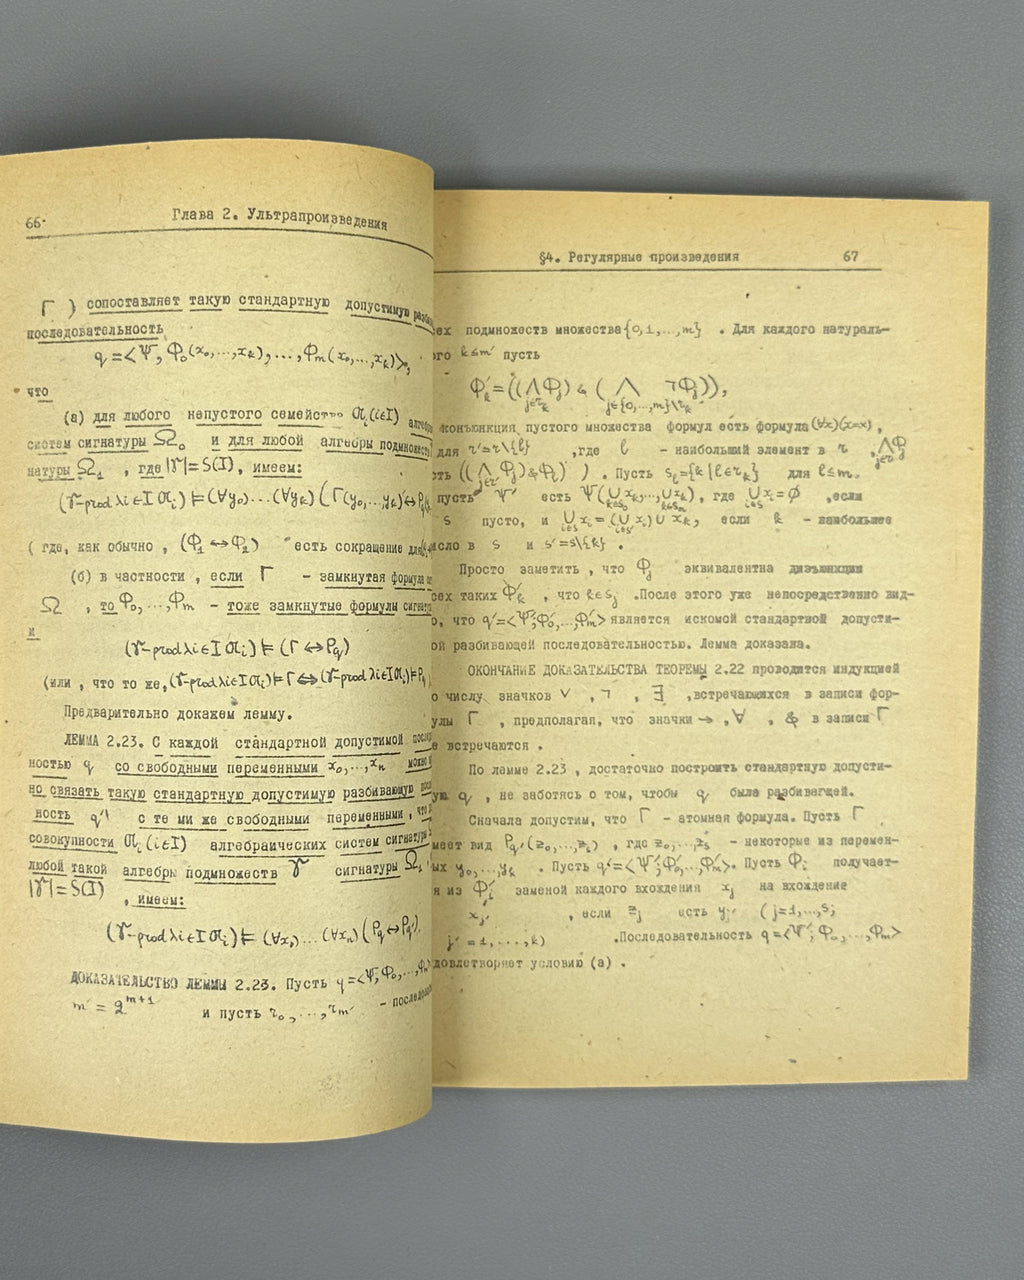 66
Глава 2. Ультрапроизведения
Γ ) сопоставляет такую стандартную допустимую
последовательность
q = <Ψ, Φ₀(x₀,...,x_k),...,Φ_m(x₀,...,x_k)>,
что
(а) для любого непустого семейство 𝔄_i (i∈I)
систем сигнатуры Ω₀ и для любой алгебры
натуры Ω₁ , где |𝔯| = S(I), имеем:
(𝔯-prod λi∈I 𝔄_i) ⊨ (∀y₀)...(∀y_k)(Γ(y₀,...,y_k) ↔ P_q
( где, как обычно , (Φ₁ ↔ Φ₂) есть сокращение для
(б) в частности , если Γ - замкнутая формула
Ω , то Φ₀,...,Φ_m - тоже замкнутые формулы
и
(𝔯-prod λi∈I 𝔄_i) ⊨ (Γ ↔ P_q)
(или , что то же, (𝔯-prod λi∈I 𝔄_i) ⊨ Γ ⟺ (𝔯-prod λi∈I 𝔄_i) ⊨ P_q
Предварительно докажем лемму.
ЛЕММА 2.23. С каждой стандартной допустимой
ностью q со свободными переменными x₀,...,x_n можно
но связать такую стандартную допустимую разбивающую
ность q' с те ми же свободными переменными , что
совокупности 𝔄_i (i∈I) алгебраических систем сигнатуры
любой такой алгебры подмножеств 𝔯 сигнатуры Ω₁
|𝔯| = S(I) , имеем:
(𝔯-prod λi∈I 𝔄_i) ⊨ (∀x₀)...(∀x_n)(P_q ↔ P_q').
ДОКАЗАТЕЛЬСТВО ЛЕММЫ 2.23. Пусть q = <Ψ, Φ₀,...,Φ_m>
m' = 2^{m+1} и пусть r₀,...,r_m' -
§4. Регулярные произведения 67
подмножеств множества {0,1,...,m} . Для каждого натураль-
k≤m' пусть
Φ'_k = ((⋀_{j∈r_k} Φ_j) & (⋀_{j∈{0,...,m}\r_k} ¬Φ_j)),
конъюнкция пустого множества формул есть формула (∀x)(x=x) ,
для r' = r\{l} ,где l - наибольший элемент в r , ⋀_{j∈r} Φ_j
((⋀_{j∈r'} Φ_j) & Φ_l) ) . Пусть s_l = {k | l∈r_k} для l≤m.
пусть Ψ' есть Ψ(⋃_{k∈s₀} x_k,...,⋃_{k∈s_m} x_k), где ⋃_{i∈s} x_i = ∅ ,если
s пусто, и ⋃_{i∈s} x_i = (⋃_{i∈s'} x_i) ∪ x_k, если k - наибольшее
число в s и s' = s\{k} .
Просто заметить , что Φ_j эквивалентна дизъюнкции
всех таких Φ'_k , что k∈s_j .После этого уже непосредственно вид-
о, что q' = <Ψ', Φ'₀,...,Φ'_m'> является искомой стандартной допусти-
ой разбивающей последовательностью. Лемма доказана.
ОКОНЧАНИЕ ДОКАЗАТЕЛЬСТВА ТЕОРЕМЫ 2.22 проводится индукцией
о числу значков ∨ , ¬ , ∃ ,встречающихся в записи фор-
улы Γ , предполагая, что значки → , ∀ , & в записи Γ
е встречаются .
По лемме 2.23 , достаточно построить стандартную допусти-
ую q , не заботясь о том, чтобы q была разбивающей.
Сначала допустим, что Γ - атомная формула. Пусть Γ
меет вид P_q'(z₀,...,z_s) , где z₀,...,z_s - некоторые из перемен-
ых y₀,...,y_k . Пусть q' = <Ψ', Φ'₀,...,Φ'_m>. Пусть Φ_i получает-
я из Φ'_i заменой каждого вхождения x_j на вхождение
x_j' , если z_j есть y_j' (j=1,...,s;
j' = 1,...,k) .Последовательность q = <Ψ', Φ₀,...,Φ_m>
довлетворяет условию (а) .